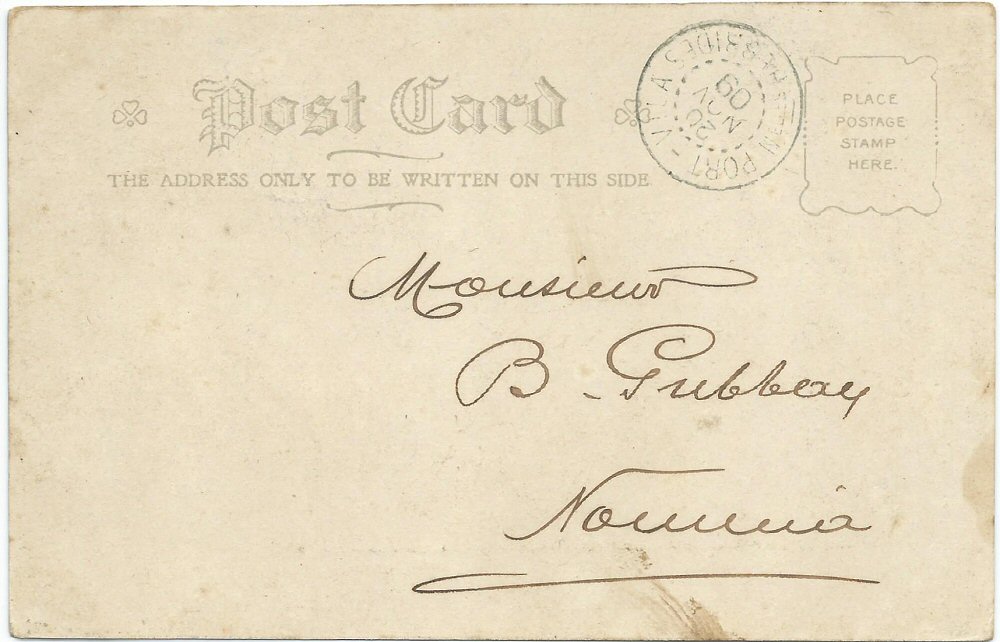 Post Card
THE ADDRESS ONLY TO BE WRITTEN ON THIS SIDE
PORT-VILA
20
NOV
09
PLACE
POSTAGE
STAMP
HERE.
Monsieur
B. Gubbay
Noumea